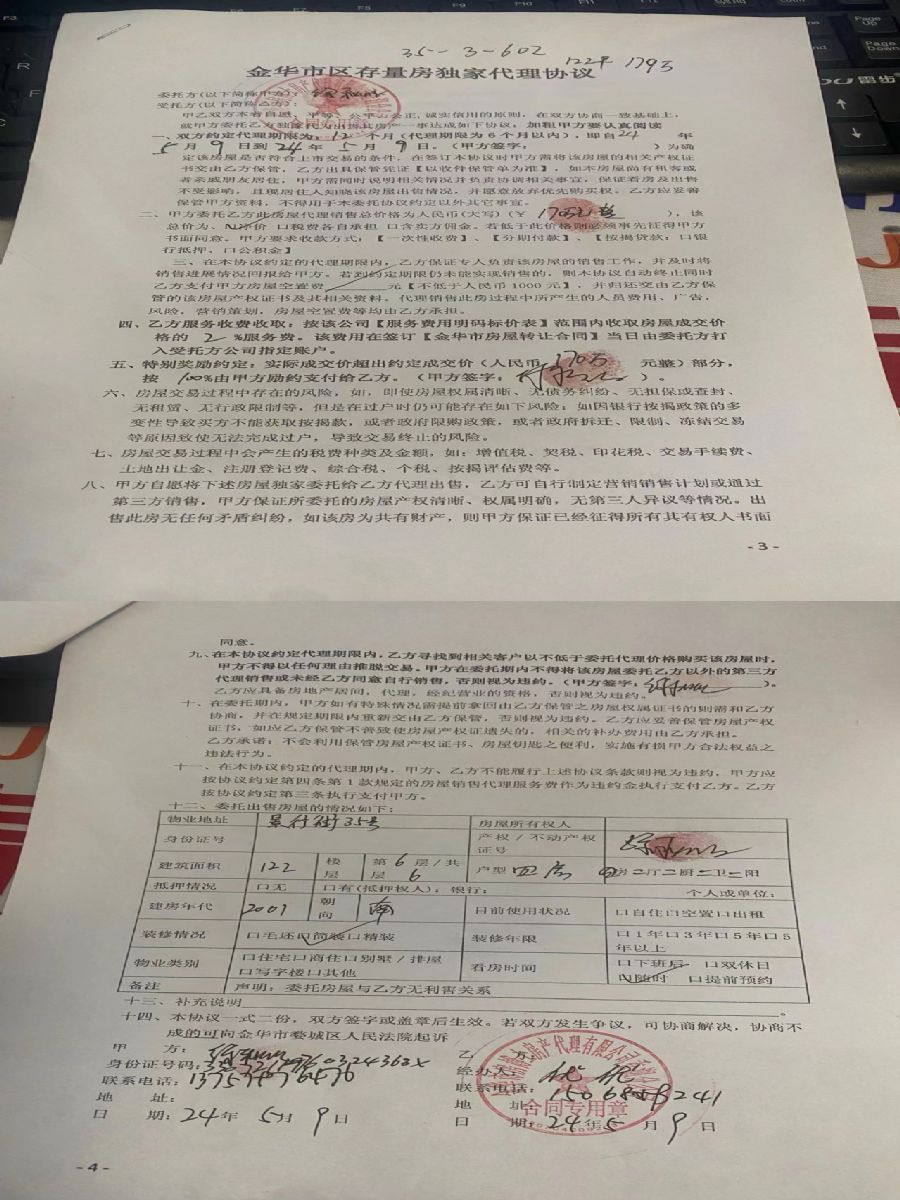 35-3-602
122平 179万
金华市区存量房独家代理协议
委托方(以下简称甲方):
受托方(以下简称乙方):
甲乙双方本着自愿、平等、公平、公正,诚实信用的原则,在双方协商一致基础上,
就甲方委托乙方独家代为出售其房产一事达成如下协议:加粗甲方要认真阅读
一、双方约定代理期限为:12个月(代理期限为6个月以内),即自24年
5月9日到24年5月9日。(甲方签字: )为确
定该房屋是否符合上市交易的条件,在签订本协议时甲方需将该房屋的相关产权证
书交由乙方保管,乙方出具保管凭证【以收件保管单为准】,如本房屋尚有租客或
者亲戚朋友居住,甲方需同时说明相关情况并负责协调相关事宜,保证看房及出售
不受影响,且现居住人知晓该房屋出售情况,并愿意放弃优先购买权。乙方应妥善
保管甲方资料,不得用于本委托协议约定以外其它事宜。
二、甲方委托乙方此房屋代理销售总价格为人民币(大写)(¥ 170万元整 ),该
总价为、☑净价 口税费各自承担 口含卖方佣金。若低于此价格则必须事先征得甲方
书面同意。甲方要求收款方式:【一次性收费】、【分期付款】、【按揭贷款:口银
行抵押、口公积金】
三、在本协议约定的代理期限内,乙方保证专人负责该房屋的销售工作,并及时将
销售进展情况回报给甲方。若到约定期限仍未能实现销售的,则本协议自动终止同时
乙方支付甲方房屋空置费 元【不低于人民币1000元】,并归还交由乙方保
管的该房屋产权证书及其相关资料,代理销售此房过程中所产生的人员费用、广告,
风险,营销策划,房屋空置费等均由乙方承担。
四、乙方服务收费收取:按该公司【服务费用明码标价表】范围内收取房屋成交价
格的 2 %服务费。该费用在签订【金华市房屋转让合同】当日由委托方打
入受托方公司指定账户。
五、特别奖励约定:实际成交价超出约定成交价(人民币 170万 元整)部分,
按 100%由甲方励约支付给乙方。(甲方签字: )。
六、房屋交易过程中存在的风险,如,即使房屋权属清晰、无债务纠纷、无担保或查封、
无租赁、无行政限制等,但是在过户时仍可能存在如下风险:如因银行按揭政策的多
变性导致买方不能获取按揭款,或者政府限购政策,或者政府拆迁、限制、冻结交易
等原因致使无法完成过户,导致交易终止的风险。
七、房屋交易过程中会产生的税费种类及金额,如:增值税、契税、印花税、交易手续费、
土地出让金、注册登记费、综合税、个税、按揭评估费等。
八、甲方自愿将下述房屋独家委托给乙方代理出售,乙方可自行制定营销销售计划或通过
第三方销售,甲方保证所委托的房屋产权清晰、权属明确,无第三人异议等情况。出
售此房无任何矛盾纠纷,如该房为共有财产,则甲方保证已经征得所有其有权人书面
- 3 -
同意。
九、在本协议约定代理期限内,乙方寻找到相关客户以不低于委托代理价格购买该房屋时,
甲方不得以任何理由推脱交易。甲方在委托期内不得将该房屋委托乙方以外的第三方
代理销售或未经乙方同意自行销售,否则视为违约。(甲方签字: )。
乙方应具备房地产居间,代理,经纪营业的资格,否则视为违约。
十、在委托期内,甲方如有特殊情况需提前拿回由乙方保管之房屋权属证书的则需和乙方
协商,并在规定期限内重新交由乙方保管,否则视为违约。乙方应妥善保管房屋产权
证书,如应乙方保管不善致使房屋产权证遗失的,相关的补办费用由乙方承担。
乙方承诺:不会利用保管房屋产权证书、房屋钥匙之便利,实施有损甲方合法权益之
违法行为。
十一、在本协议约定的代理期内,甲方、乙方不能履行上述协议条款则视为违约,甲方应
按协议约定第四条第1款规定的房屋销售代理服务费作为违约金执行支付乙方。乙方
按协议约定第三条执行支付甲方。
十二、委托出售房屋的情况如下:
物业地址 景行街35号 房屋所有权人
身份证号 产权/不动产权证号
建筑面积 122 楼层 第6层/共6层 户型 四房 二厅二厨二卫二阳
抵押情况 口无 口有(抵押权人):银行: 个人或单位:
建房年代 2007 朝向 南 目前使用状况 口自住口空置口出租
装修情况 口毛坯口简装口精装 装修年限 口1年口3年口5年口5年以上
物业类别 口住宅口商住口别墅/排屋口写字楼口其他 看房时间 口下班后 口双休日 ☑随时 口提前预约
备注 声明:委托房屋与乙方无利害关系
十三、补充说明
十四、本协议一式二份,双方签字或盖章后生效。若双方发生争议,可协商解决,协商不
成的可向金华市婺城区人民法院起诉
甲 方: 乙 方:
身份证号码: 经办人:
联系电话:13757976476 联系电话:
地 址: 地 址:
日 期:24年5月9日 日 期:24年5月9日
合同专用章
- 4 -